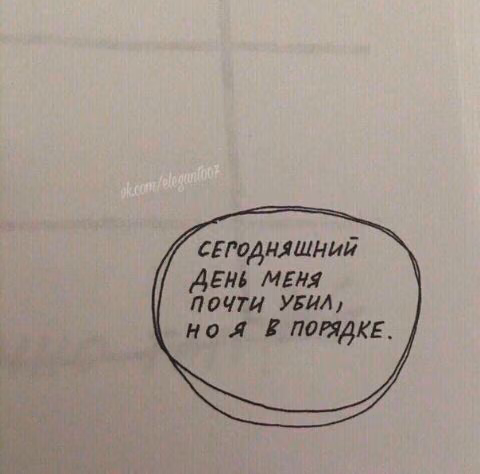 vk.com/elegant007
СЕГОДНЯШНИЙ
ДЕНЬ МЕНЯ
ПОЧТИ УБИЛ,
НО Я В ПОРЯДКЕ.